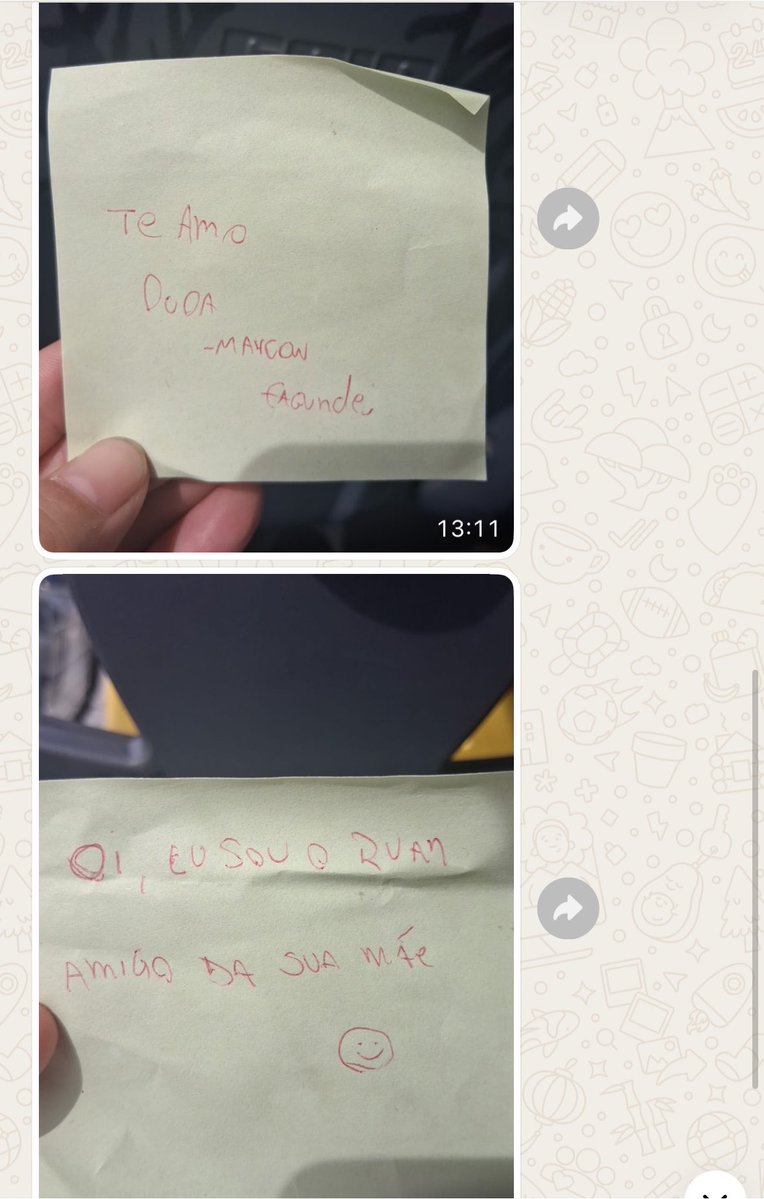 Te Amo
DUDA
-MAYCON
FAGUNDE
13:11
OI, EU SOU O RUAN
AMIGO DA SUA MÃE